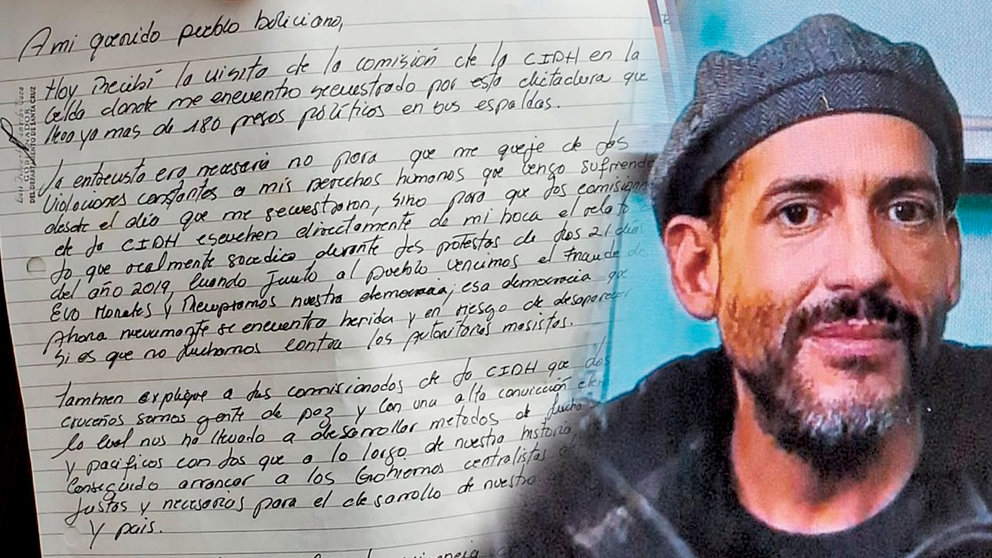 A mi querido pueblo boliviano,
Hoy recibí la visita de la comisión de la CIDH en la
celda donde me encuentro secuestrado por esta dictadura que
lleva ya mas de 180 presos políticos en sus espaldas.
La entrevista era necesaria no para que me queje de las
violaciones constantes a mis derechos humanos que vengo sufriendo
desde el día que me secuestraron, sino para que los comisionados
de la CIDH escuchen directamente de mi boca el relato
lo que realmente sucedio durante las protestas de los 21 días
del año 2019, cuando junto al pueblo vencimos el fraude de
Evo Morales y recuperamos nuestra democracia; esa democracia que
ahora nuevamente se encuentra herida y en riesgo de desaparecer
si es que no luchamos contra los autoritarios masistas.
También explique a los comisionados de la CIDH que los
cruceños somos gente de paz y con una alta convicción
lo cual nos ha llevado a desarrollar metodos de lucha
y pacificos con los que a lo largo de nuestra historia,
conseguido arrancar a los Gobiernos centralistas
justas y necesarias para el desarrollo de nuestro
y pais.
GOBERNADOR
DEL DEPARTAMENTO DE SANTA CRUZ